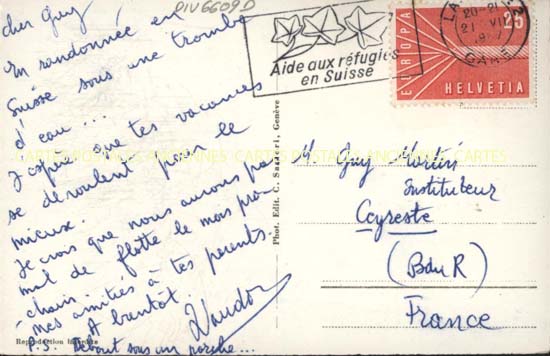 cher Guy
DIV6609D
En randonnée en
Suisse sous une trombe
d'eau...
J'espère que tes vacances
se déroulent pour le
mieux.
Je crois que nous aurons pas
mal de flotte le mois pro-
chain.
mes amitiés à tes parents.
A bientôt.
P.S. Debout sous un porche...
Reproduction Interdite
Phot. Edit. C. Sartori, Genève
Aide aux réfugiés
en Suisse
20-21
21 VI
GARE
EUROPA
25
HELVETIA
M. Guy Martin
Instituteur
Ceyreste
(B du R)
France
CARTES POSTALES ANCIENNES CARTES POSTALES ANCIENNES CARTES